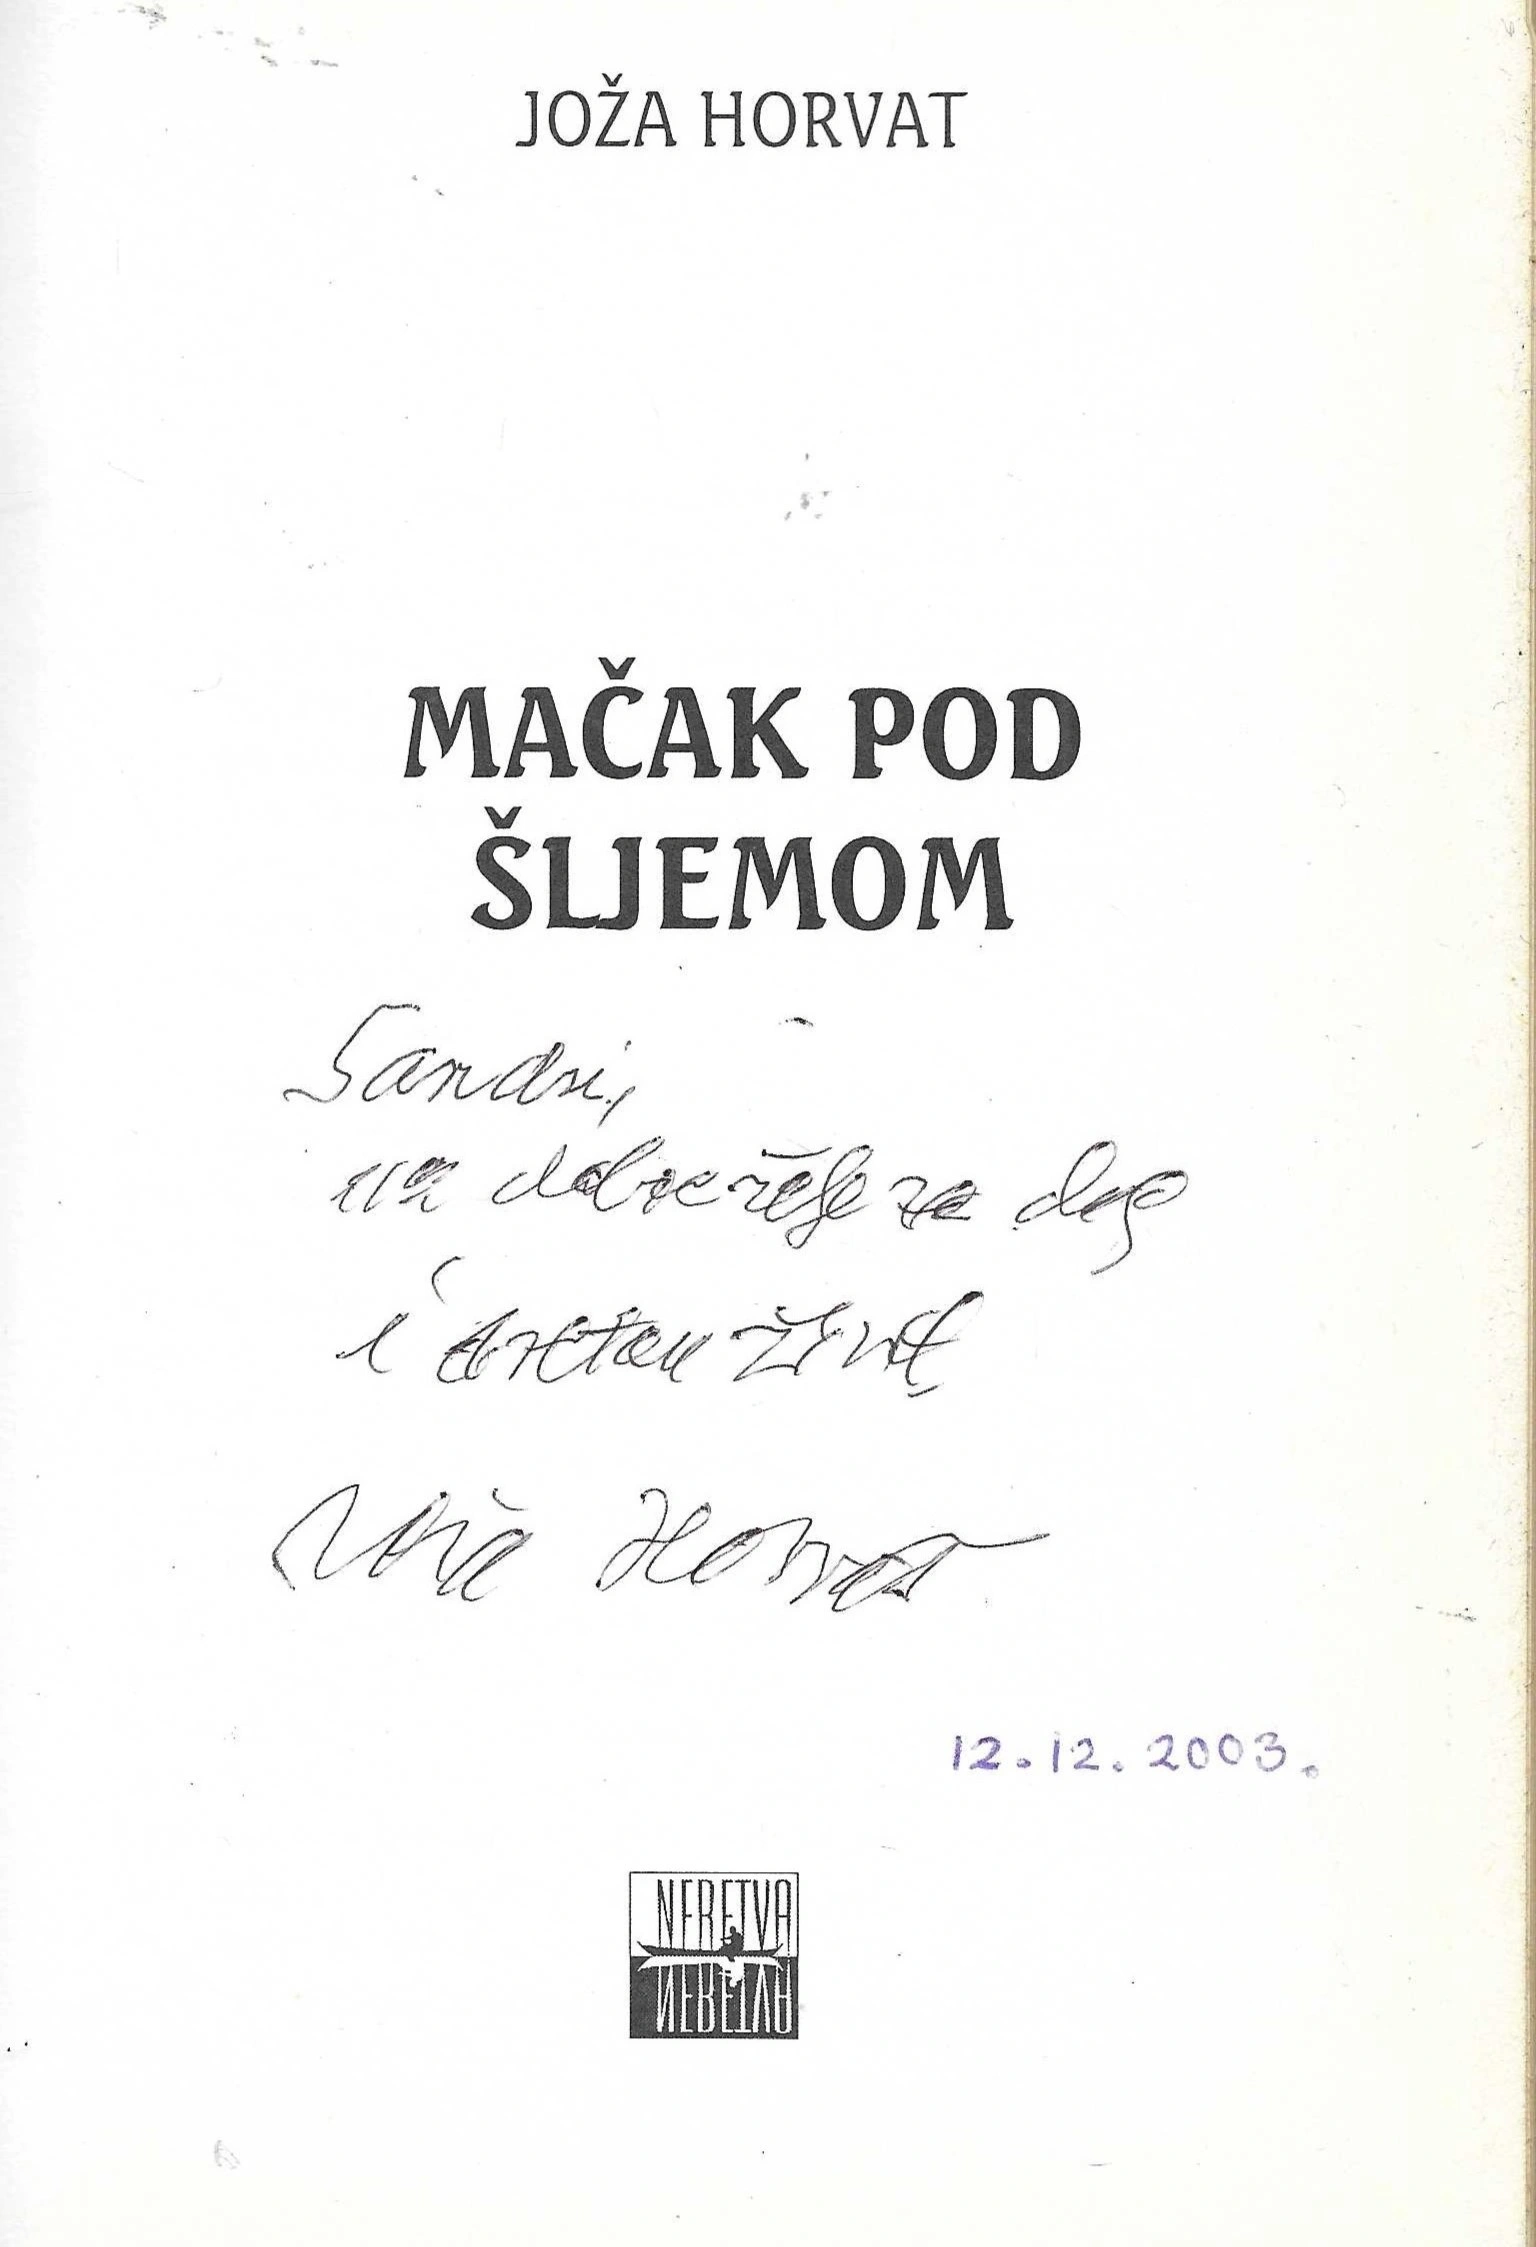 JOŽA HORVAT
MAČAK POD
ŠLJEMOM
Sandri,
uz dobre želje za dug
i sretan život
Joža Horvat
12.12.2003.
NERETVA
NERETVA